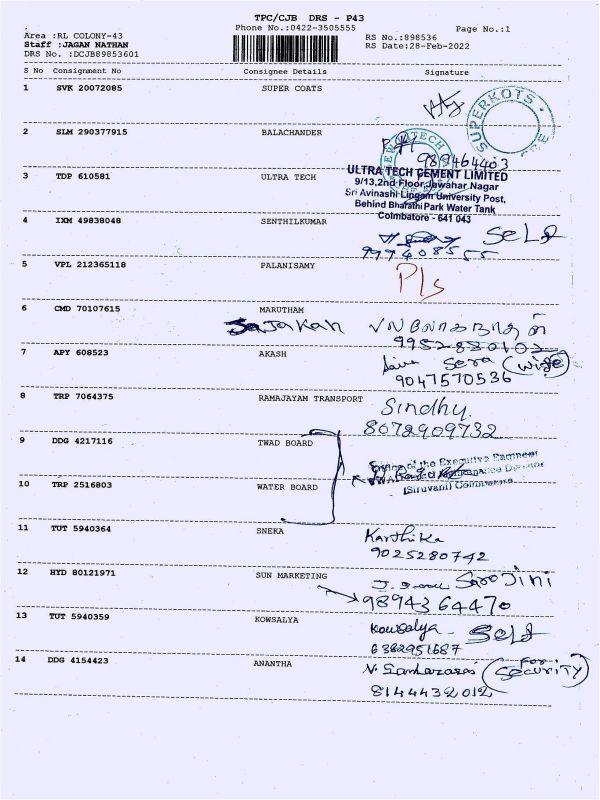 TPC/CJB DRS - P43
Phone No.:0422-3505555
Page No.:1
Area :RL COLONY-43
RS No.:898536
Staff :JAGAN NATHAN
RS Date:28-Feb-2022
DRS No. :DCJB89853601
S No Consignment No Consignee Details Signature
1 SVK 20072085 SUPER COATS
SUPERKOTS
2 SLM 290377915 BALACHANDER
989464403
3 TDP 610581 ULTRA TECH
ULTRA TECH CEMENT LIMITED
9/13,2nd Floor,Jawahar Nagar
Sri Avinashi Lingam University Post,
Behind Bharathi Park Water Tank
Coimbatore - 641 043
4 IXM 49838048 SENTHILKUMAR
Self
9994408555
5 VPL 212365118 PALANISAMY
Pls
6 CMD 70107615 MARUTHAM
9952830102
7 APY 608523 AKASH
(wife)
9047570536
8 TRP 7064375 RAMAJAYAM TRANSPORT
Sindhy.
8072909732
9 DDG 4217116 TWAD BOARD
Office of the Executive Engineer
10 TRP 2516803 WATER BOARD
(Siruvani) Coimbatore
11 TUT 5940364 SNEKA
Karthika
9025280742
12 HYD 80121971 SUN MARKETING
Sarojini
9894364470
13 TUT 5940359 KOWSALYA
Kowsalya - Self
6382951687
14 DDG 4154423 ANANTHA
(FOR SECURITY)
8144432012